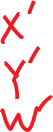 x'
y'
w